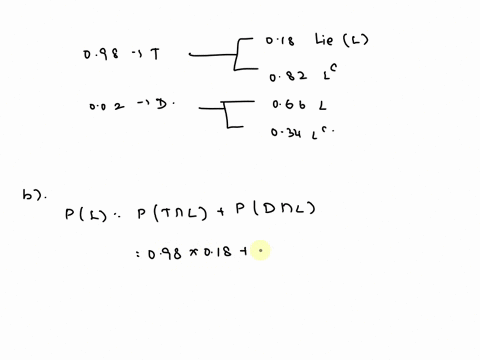 0.18 Lie (L)
0.98 → T
0.82 Lᶜ
0.02 → D.
0.66 L
0.34 Lᶜ.
b).
P(L) ∴ P(T∩L) + P(D∩L)
: 0.98 × 0.18 + .